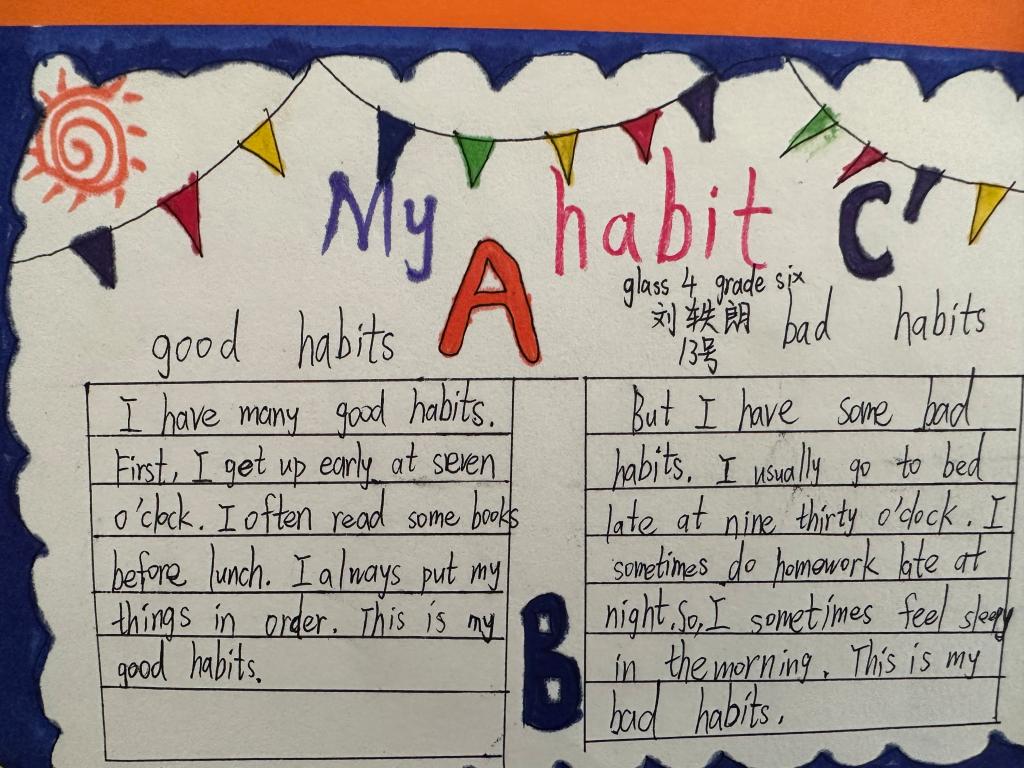 My habit
A
C
glass 4 grade six
刘轶朗
13号
good habits
I have many good habits.
First, I get up early at seven
o'clock. I often read some books
before lunch. I always put my
things in order. This is my
good habits.
B
bad habits
But I have some bad
habits. I usually go to bed
late at nine thirty o'clock. I
sometimes do homework late at
night. So, I sometimes feel sleepy
in the morning. This is my
bad habits.